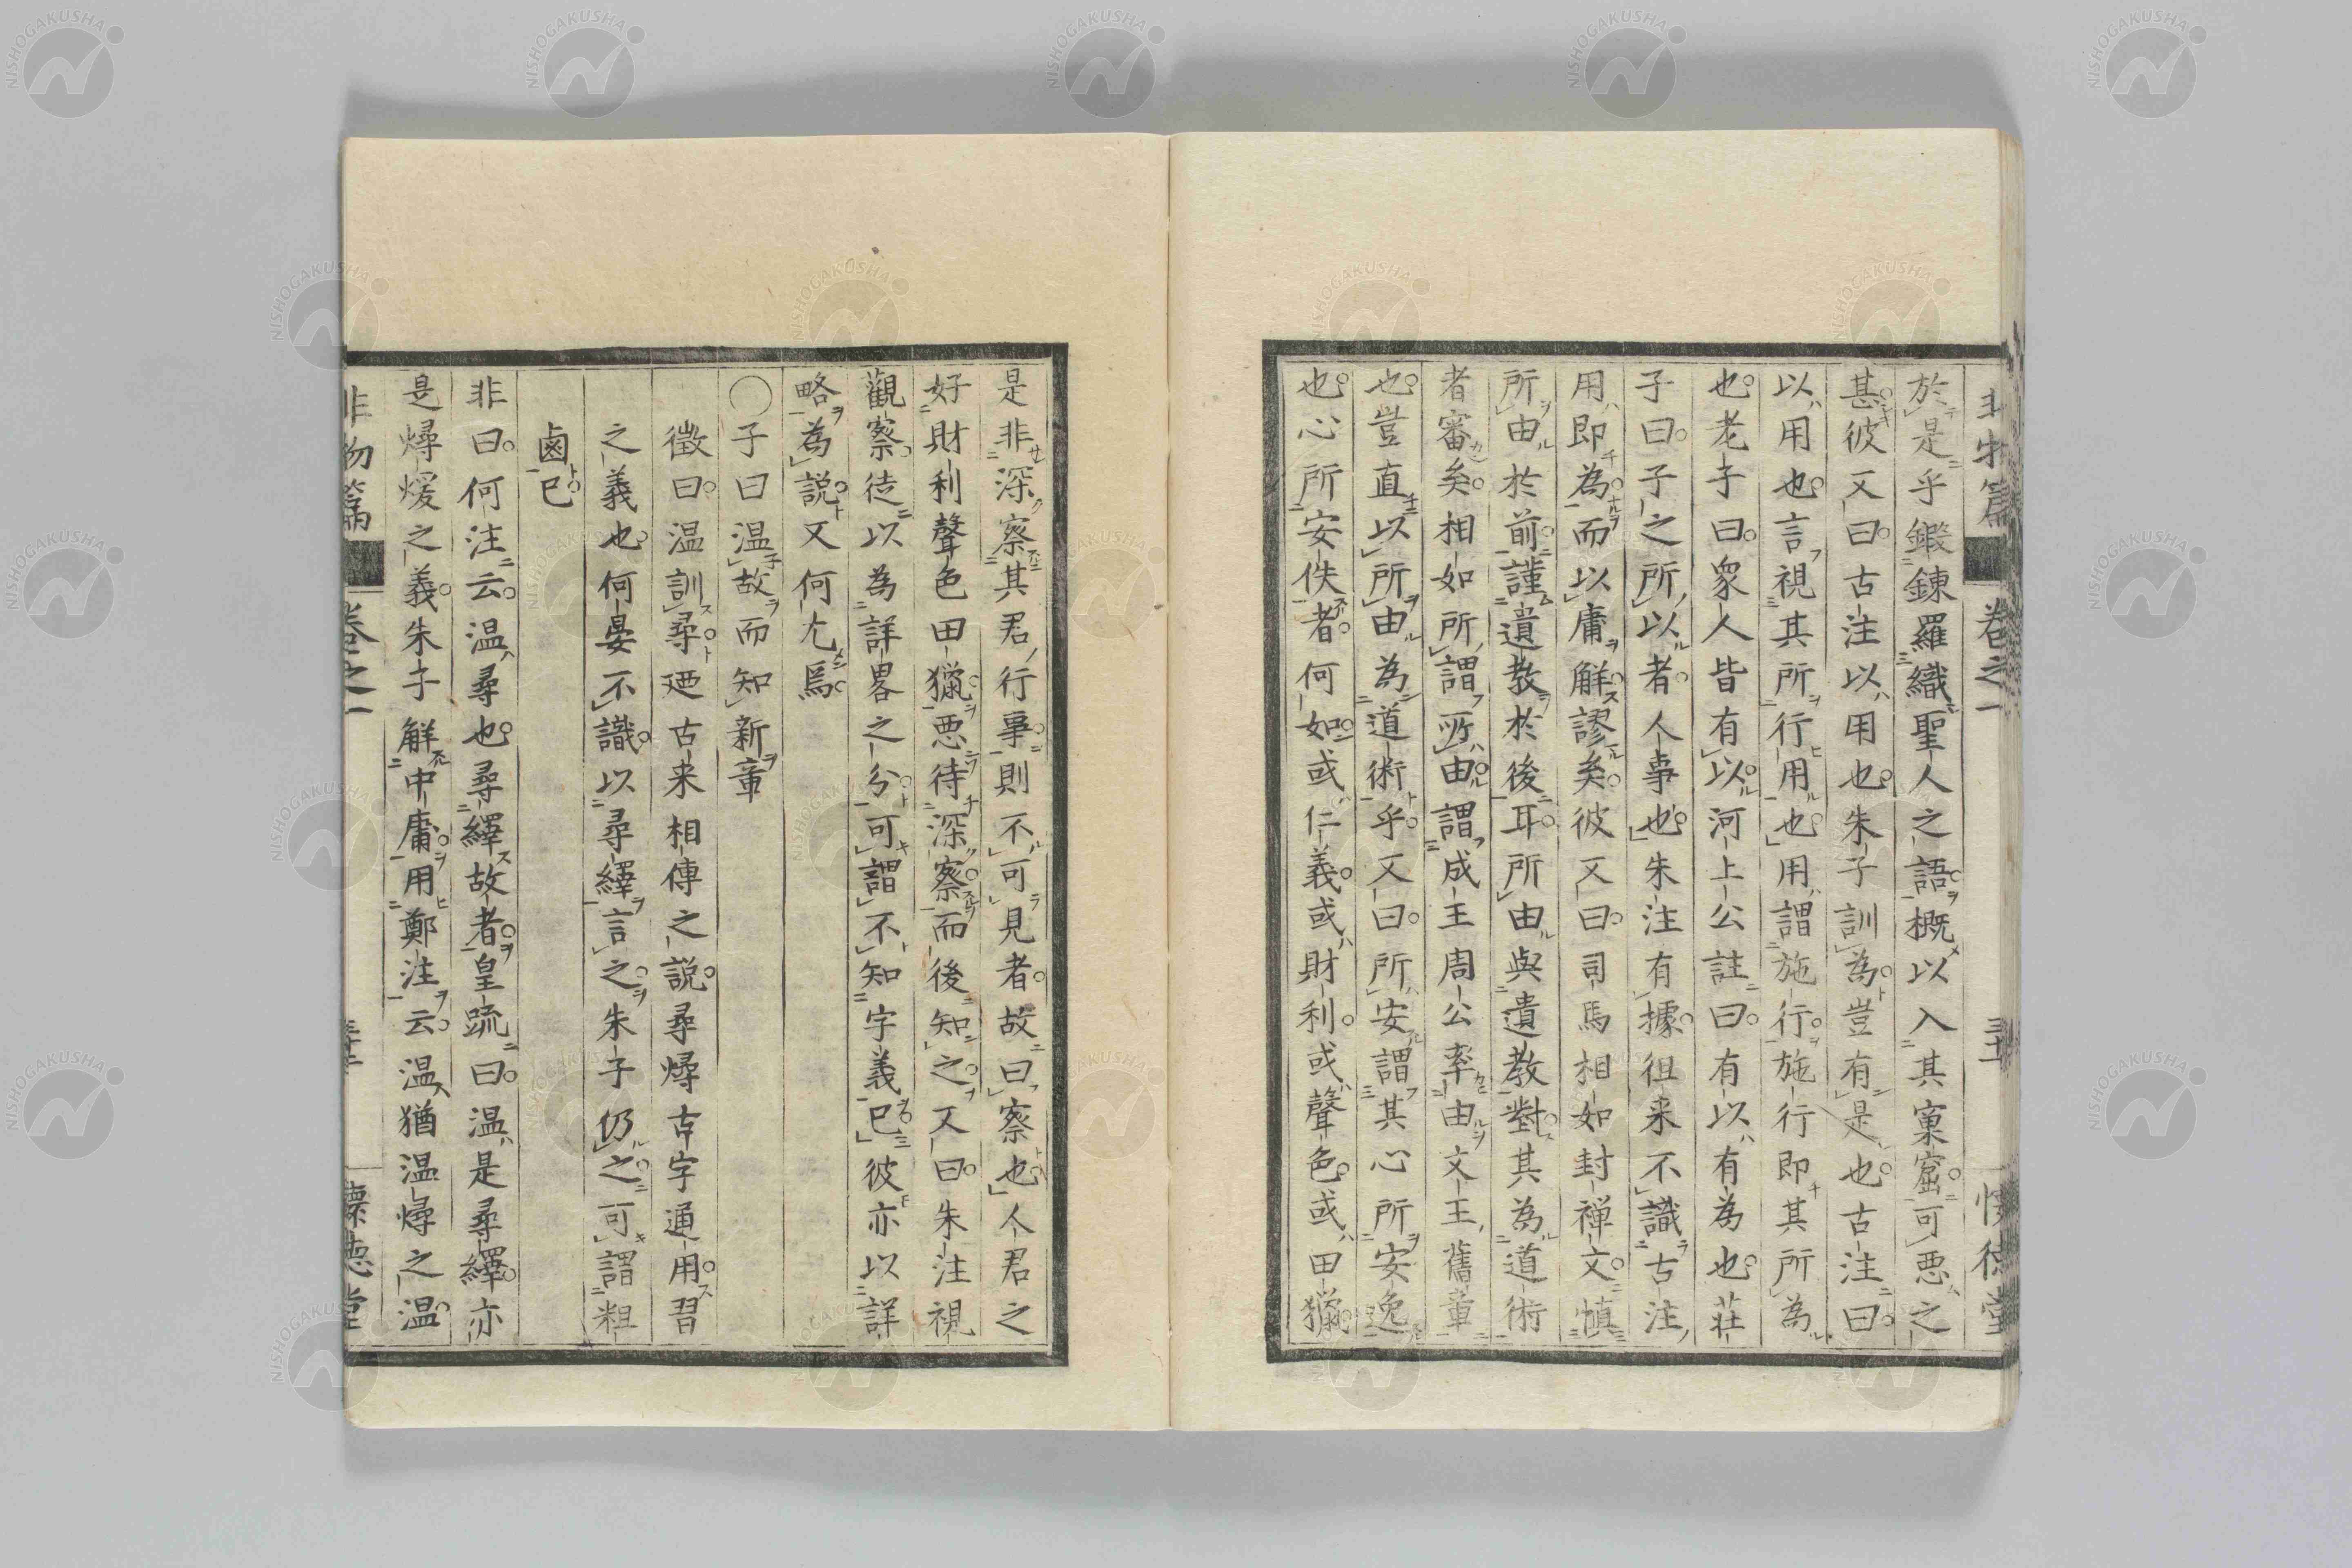 非物篇 卷之一 三十 懷德堂
於是乎鍛鍊羅織聖人之語概以入其窠窟可惡之
甚彼又曰古注以用也朱子訓為豈有是也古注曰
以用也言視其所行用也用謂施行施行即其所為
也老子曰眾人皆有以河上公註曰有以有為也莊
子曰子之所以者人事也朱注有據徂来不識古注
用即為而以庸解謬矣彼又曰司馬相如封禅文慎
所由於前謹遺教於後耳所由與遺教對其為道術
者審矣相如所謂所由謂成王周公率由文王舊章
也豈直以所由為道術乎又曰所安謂其心所安逸
也心所安佚者何如或仁義或財利或聲色或田獵
是非深察其君行事則不可見者故曰察也人君之
好財利聲色田獵悪待深察而後知之又曰朱注視
觀察徒以為詳畧之分可謂不知字義已彼亦以詳
略為説又何尤焉
○子曰温故而知新章
徵曰温訓尋廼古来相傳之説尋燖古字通用習
之義也何晏不識以尋繹言之朱子仍之可謂粗
鹵已
非曰何注云温尋也尋繹故者皇疏曰温是尋繹亦
是燖煖之義朱子解中庸用鄭注云温猶温燖之温
非物篇 卷之一 懷德堂